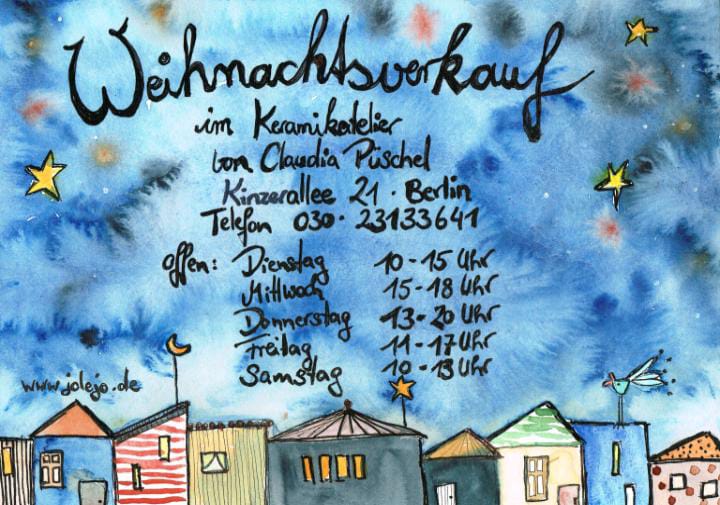 Weihnachtsverkauf
im Keramikatelier
von Claudia Püschel
Kinzerallee 21 · Berlin
Telefon 030 · 23133641
offen: Dienstag 10 - 15 Uhr
Mittwoch 15 - 18 Uhr
Donnerstag 13 - 20 Uhr
Freitag 11 - 17 Uhr
Samstag 10 - 13 Uhr
www.jolejo.de